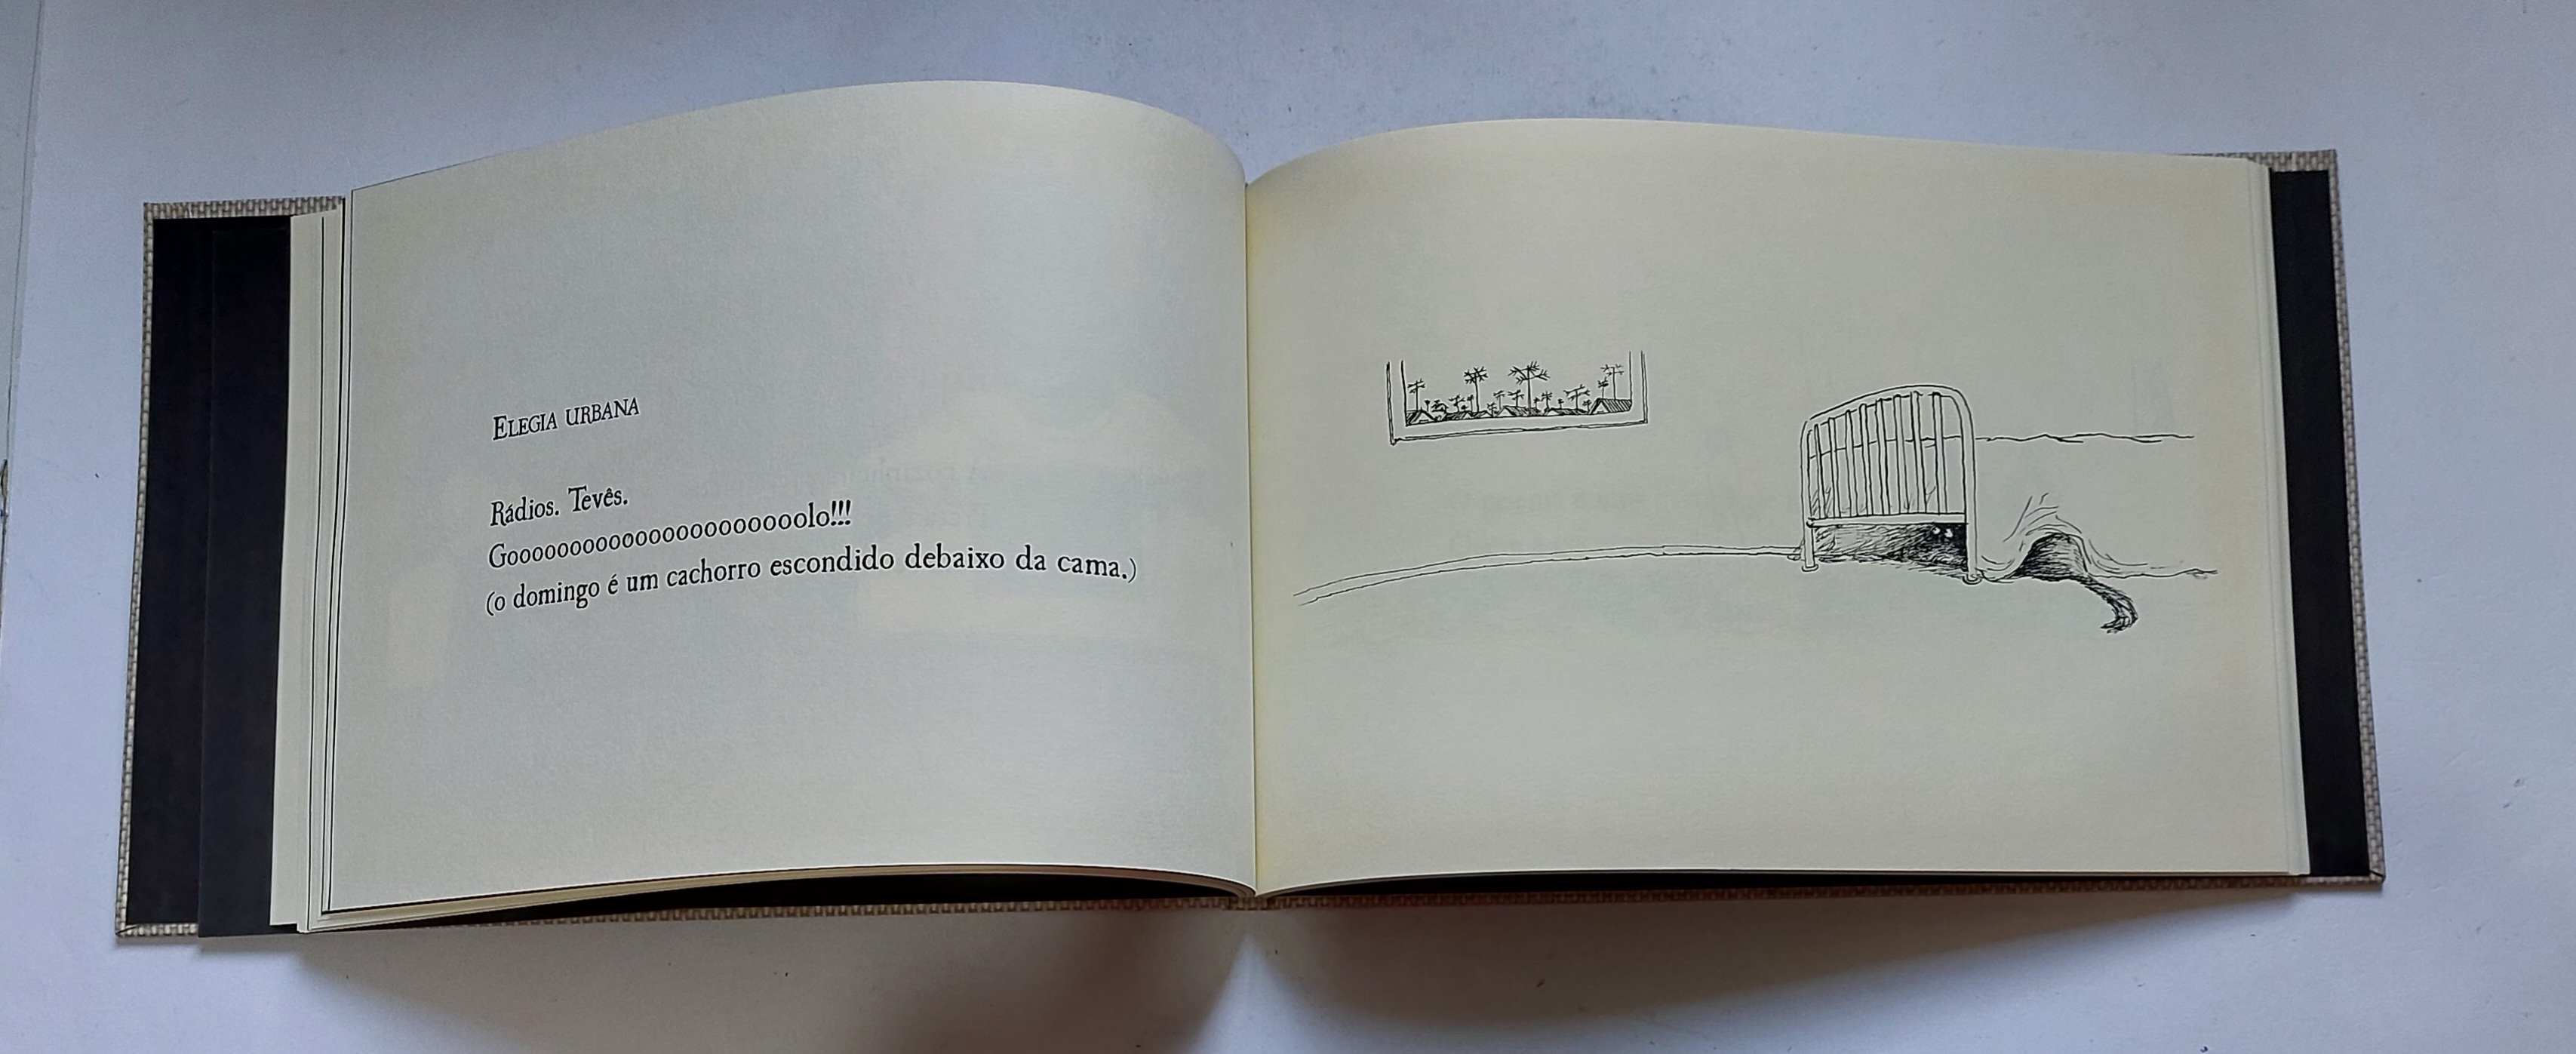 ELEGIA URBANA
Rádios. Tevês.
Gooooooooooooooooooooolo!!!
(o domingo é um cachorro escondido debaixo da cama.)